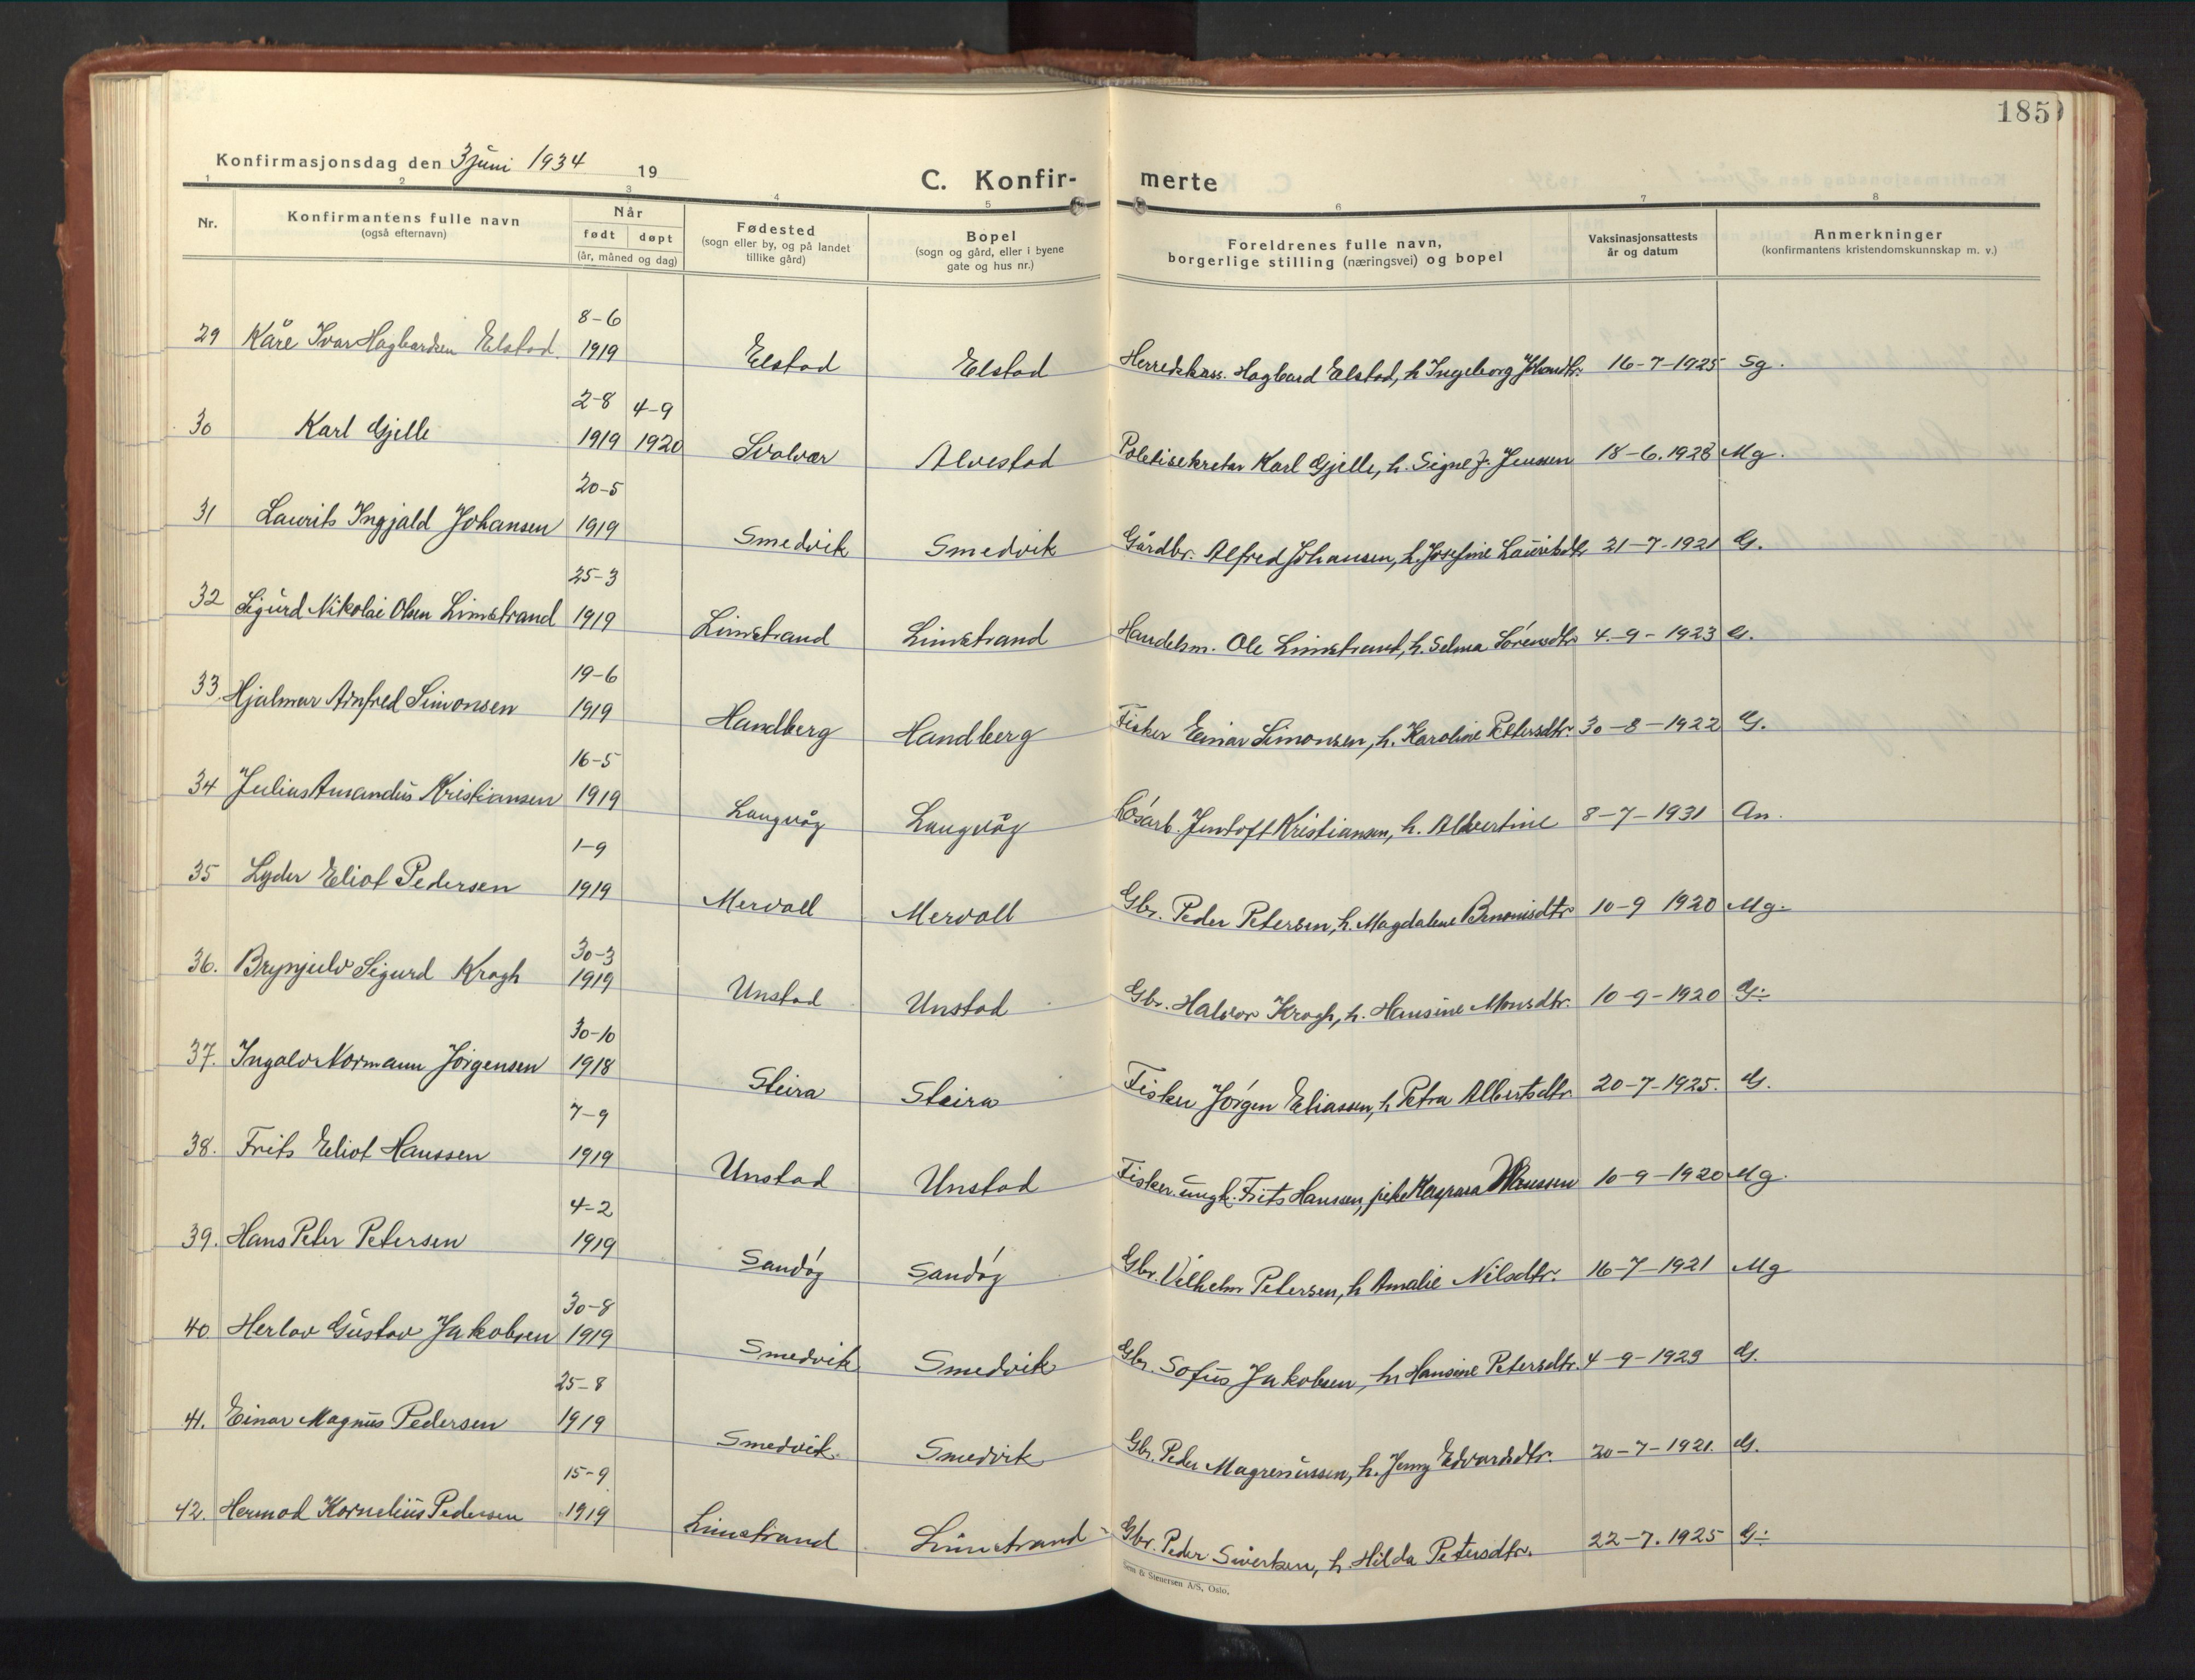 185
Konfirmasjonsdag den 3 juni 1934 19
C. Konfir- merte
1 2 3 4 5 6 7 8
Nr. Konfirmantens fulle navn (også efternavn) Når født døpt (år, måned og dag) Fødested (sogn eller by, og på landet tillike gård) Bopel (sogn og gård, eller i byene gate og hus nr.) Foreldrenes fulle navn, borgerlige stilling (næringsvei) og bopel Vaksinasjonsattests år og datum Anmerkninger (konfirmantens kristendomskunnskap m. v.)
29 Kåre Ivar Hagbardsen Elstad 8-6 1919 Elstad Elstad Herredskass. Hagbard Elstad, h. Ingeborg Johandtr. 16-7-1925 Sg.
30 Karl Gjelle 2-8 1919 4-9 1920 Svolvær Alvestad Politisekretær Karl Gjelle, h. Signe J. Jenssen 18-6.1928 Mg.
31 Laurits Ingjald Johansen 20-5 1919 Smedvik Smedvik Gårdbr. Alfred Johansen, h. Josefine Lauritsdtr 21-7-1921 G.
32 Sigurd Nikolai Olsen Limstrand 25-3 1919 Limstrand Limstrand Handelsm. Ole Limstrand, h. Selma Sørensdtr 4.-9-1923 G.
33. Hjalmar Arnfred Simonsen 19-6 1919 Handberg Handberg Fisker Einar Simonsen, h. Karoline Petersdtr. 30-8-1922 G.
34 Julius Amandus Kristiansen 16-5 1919 Laugvåg Laugvåg Løsarb. Jentoft Kristiansen, h. Albertine 8-7-1931 An.
35 Lyder Eliot Pedersen 1-9 1919 Mervoll Mervoll Gbr. Peder Petersen, h. Magdalene Benonisdtr 10-9 1920 Mg.
36. Brynjulv Sigurd Krogh 30-3 1919 Unstad Unstad Gbr. Halvor Krogh, h. Hansine Monsdtr. 10-9-1920 G÷
37. Ingolv Normann Jørgensen 30-10 1918 Steira Steira Fisker Jørgen Eliassen, h. Petra Albertsdtr. 20-7-1925. G.
38. Frits Eliot Hanssen 7-9 1919 Unstad Unstad Fisker. ungk. Frits Hanssen, pike Kaspara Hanssen 10-9-1920 Mg.
39. Hans Peter Petersen 4-2 1919 Sandøy Sandøy Gbr. Vilhelm Petersen, h. Amalie Nilsdtr. 16-7-1921 Mg
40 Herlov Gustav Jakobsen 30-8 1919 Smedvik Smedvik Gbr. Sofus Jakobsen, h. Hansine Petersdtr. 4-9-1923 G.
41. Einar Magnus Pedersen 25-8 1919 Smedvik. Smedvik Gbr. Peder Magnussen, h. Jenny Edvardsdtr. 20-7-1921. G.
42. Hermod Kornelius Pedersen 15-9 1919 Limstrand Limstrand Gbr. Peder Sivertsen, h. Hilda Petersdtr. 22-7.1925 G÷
Sem & Stenersen A/S, Oslo.